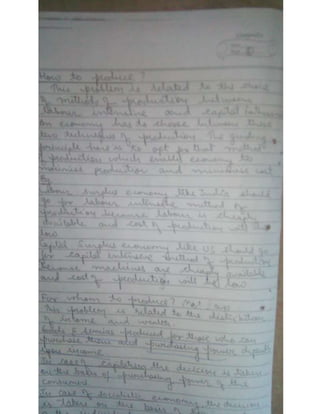 How to produce?
This problem is related to the choice
of methods of production between
labour intensive and capital intensive
An economy has to choose between these
two techniques of production. The guiding
principle here is to opt for that method
of production which enable economy to
maximise production and minimise cost
Labour surplus economy like India should
go for labour intensive method of
production because labour is cheaply
available and cost of production will be
low
Capital Surplus economy like US should go
for capital intensive method of production
Because machines are cheaply available
and cost of production will be low
For whom to produce?
This problem is related to the distribution
of income and wealth
Goods & services produced for those who can
purchase them and purchasing power depends
upon income
In case of capitalism the decision is taken
on the basis of purchasing power of the
consumer
In case of socialistic economy the decision
is taken on the basis of